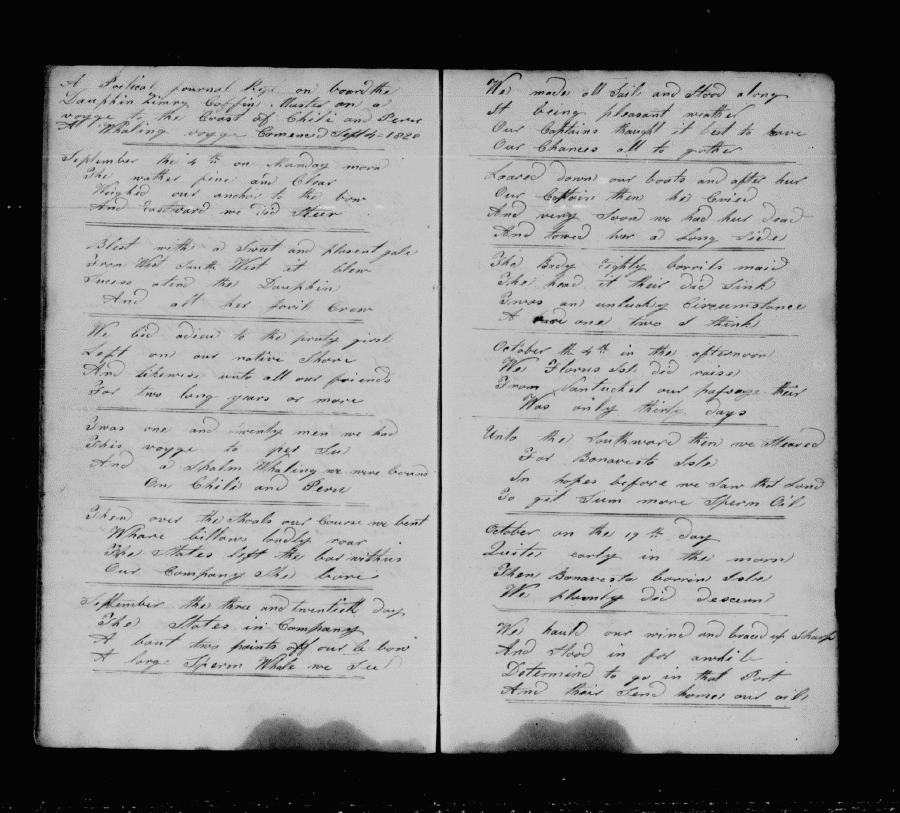 A Poetical journal Kept on board the
Dauphin Zimry Coffin Master on a
voyge to the Coast of Chili and Peru
A Whaling voyge Comencd Sept 4 - 1820
September the 4th on Monday morn
The wather fine and Clear
Weighed our anchor to the bow
And Eastward we did Steer
Blest with a Sweet and plesent gale
From West South West it blew
Sucess atend the Dauphin
And all her jovil Crew
We bid adieu to the prity girls
Left on our native Shore
And likewise unto all our friends
For two long years or more
Twas one and twenty men we had
This voyge to per Su
And a Whaling we were bound
On Chili and Peru
Then over the Shoals our Course we bent
Whare billows loudly roar
The States left the bar with us
Our Company She bore
September the three and twentieth day
The States in Company
A bout two points off our le bow
A large Sperm Whale we See
We made all Sail and Stood along
It being plesant weather
Our Captains thought it best to have
Our Chances all to gether
Loared down our boats and after hur
Our Captain then he Cries
And very Soon we had hur dead
And towed hur a Long Side
The Body Eighty barrils maid
The head it their did Sink
Twas an unlucky Circumstance
A one two I think
October th 4th in the afternoon
We Florus Isl did raise
From Nantucket our passage their
Was only thirty days
Unto the Southward then we Steared
For Bonavesto Isle
In hopes before we Saw that Land
To git Sum more Sperm Oil
October on the 19th day
Quite early in the morn
Then Bonavesta barrin Isle
We plainly did descern
We hauld our wind and braced up Sharp
And Stood in for awhile
Determind to go in that Port
And their Send home our oil